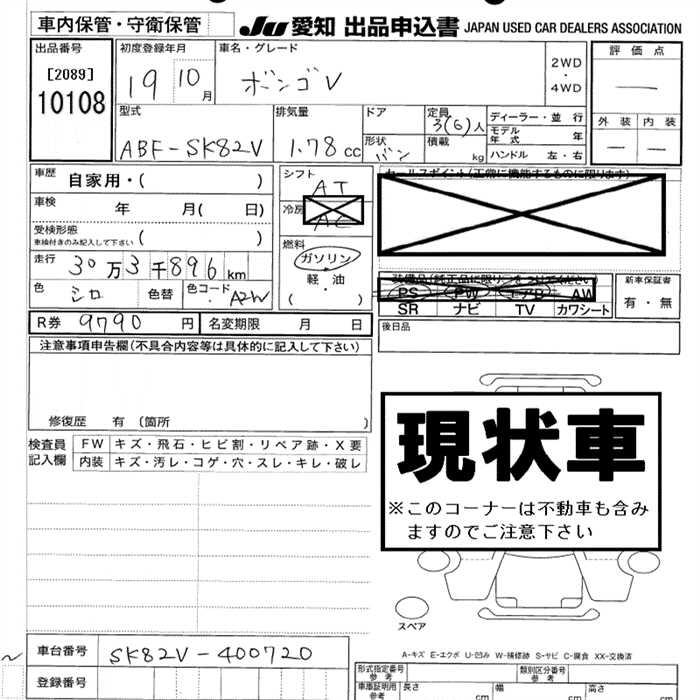 車内保管・守衛保管
JU 愛知 出品申込書 JAPAN USED CAR DEALERS ASSOCIATION
出品番号
[2089]
10108
初度登録年月
19 10月
車名・グレード
ボンゴV
2WD
・
4WD
評価点
外装 内装
型式
ABF-SK82V
排気量
1.78 cc
ドア
形状
バン
定員
3(6)人
積載
kg
ディーラー・並行
モデル年式 年
ハンドル 左・右
車歴
自家用・( )
車検 年 月( 日)
受検形態
車検付きのみ記入して下さい ( )
走行 30万3千896km
色 シロ 色替 色コード A2W
シフト
AT
冷房
AC
燃料
ガソリン
・
軽油
( )
セールスポイント(正常に機能するものに限ります)
装備品(純正品に限り○をつけてください)
PS PW エアB AW
SR ナビ TV カワシート
新車保証書
有・無
後日品
R券 9790 円 名変期限 月 日
注意事項申告欄(不具合内容等は具体的に記入して下さい)
修復歴 有 (箇所 )
検査員記入欄
FW キズ・飛石・ヒビ割・リペア跡・X要
内装 キズ・汚レ・コゲ・穴・スレ・キレ・破レ
現状車
※このコーナーは不動車も含み
ますのでご注意下さい
スペア
A-キズ E-エクボ U-凹み W-補修跡 S-サビ C-腐食 XX-交換済
車台番号 SK82V-400720
登録番号
形式指定番号 参考
類別区分番号 参考
車車証明用 参考
長さ cm
幅 cm
高さ cm